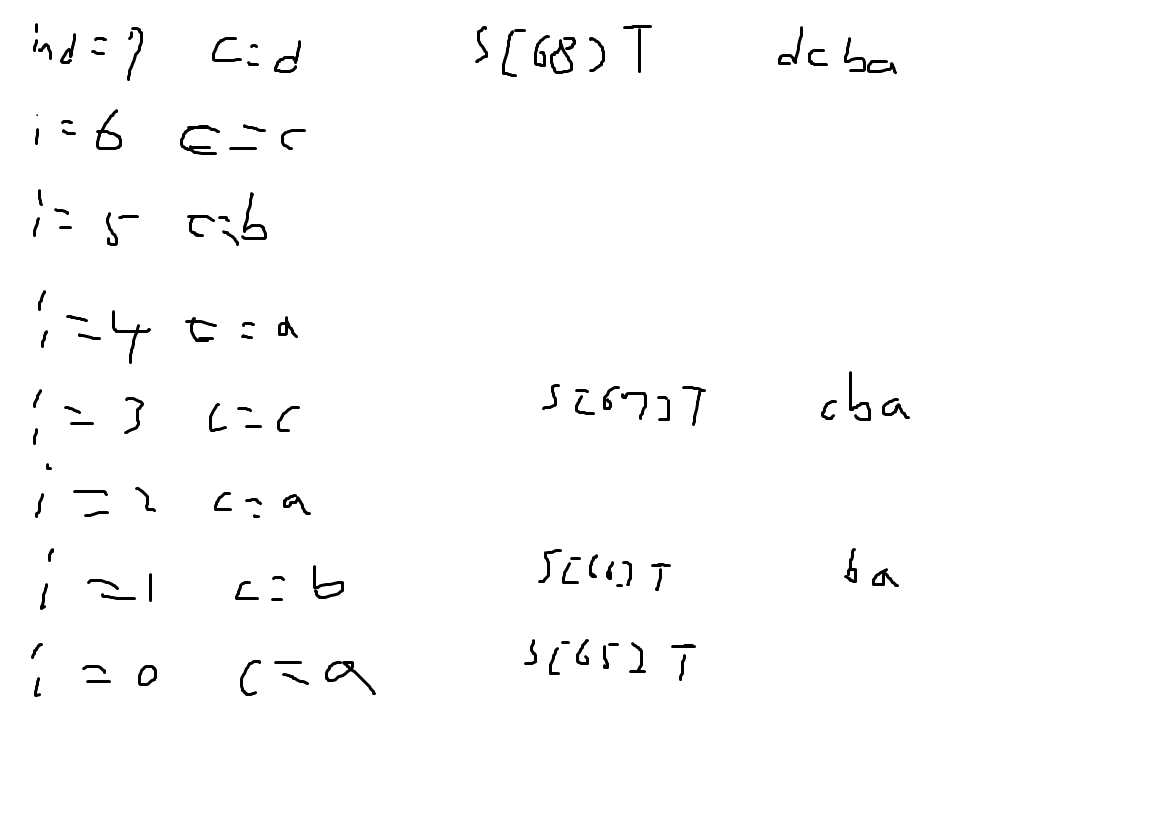 ind = 7 c = d S[68] T dcba
i = 6 c = c
i = 5 c = b
i = 4 c = a
i = 3 c = c S[67] T cba
i = 2 c = a
i = 1 c = b S[66] T ba
i = 0 c = a S[65] T